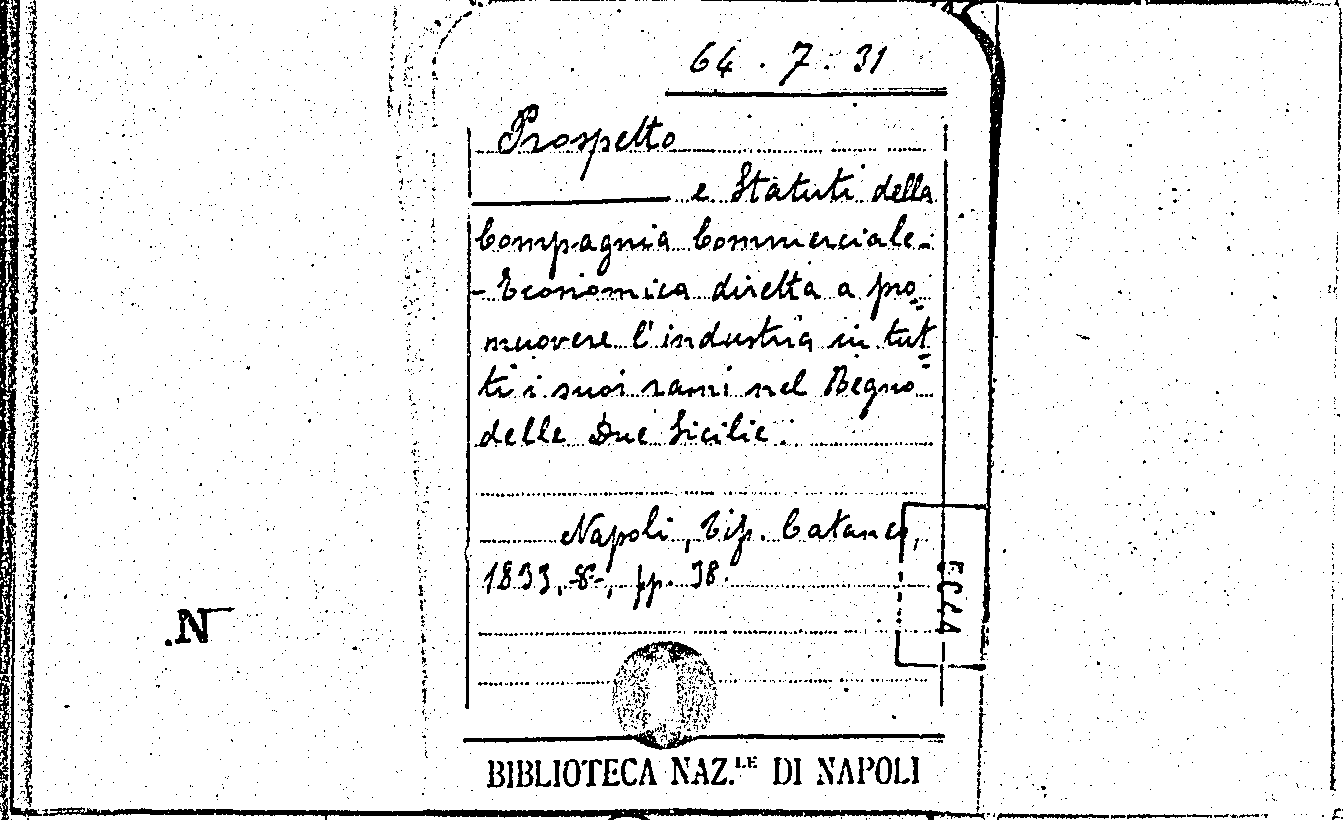 64 . 7 . 31
Prospetto
e Statuti della
Compagnia Commerciale-
-Economica diretta a pro
muovere l'industria in tut
ti i suoi rami nel Regno
delle Due Sicilie.
Napoli, Tip. Cataneo,
1833, 8°, pp. 38.
.N
BIBLIOTECA NAZ.LE DI NAPOLI